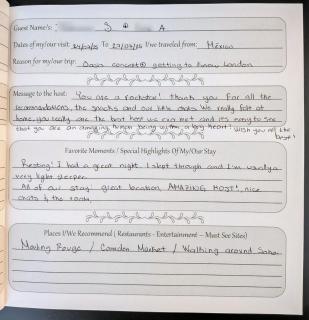 Guest Name/s: S ⊕ A
Dates of my/our visit: 24/07/25 To 27/07/25 I/we traveled from: México
Reason for my/our trip: Oasis concert getting to know London
Message to the host: You are a rockstar! thank you for all the
recommendations, the snacks and our little chats. We really felt at
home, you really are the best host we can met and it's easy to see
that you are an amazing human being with a big heart! Wish you all the
best!
Favorite Moments / Special Highlights Of My/Our Stay
Resting! I had a great night. I slept through and I'm usually a
very light sleeper.
All of our stay! great location, AMAZING HOST!, nice
chats & the room.
Places I/We Recommend ( Restaurants - Entertainment – Must See Sites)
Rouge / Camden Market / Walking around Soho.